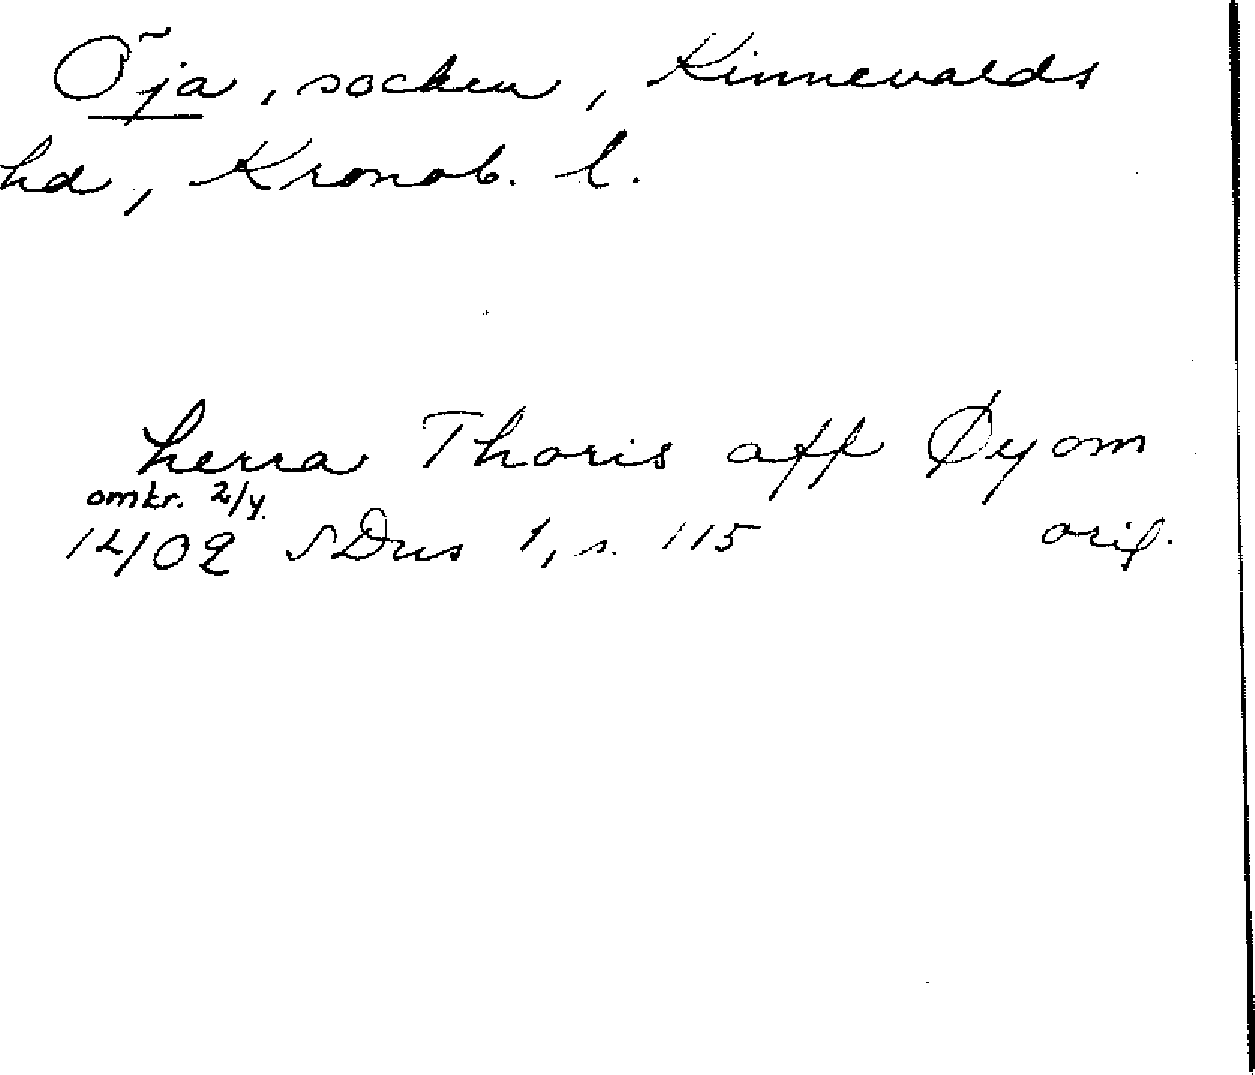 Öja, socken, Kinnevalds
hd, Kronob. l.
herra Thoris aff Øyom
omkr. 2/4.
1402 SDns 1, s. 115 orig.